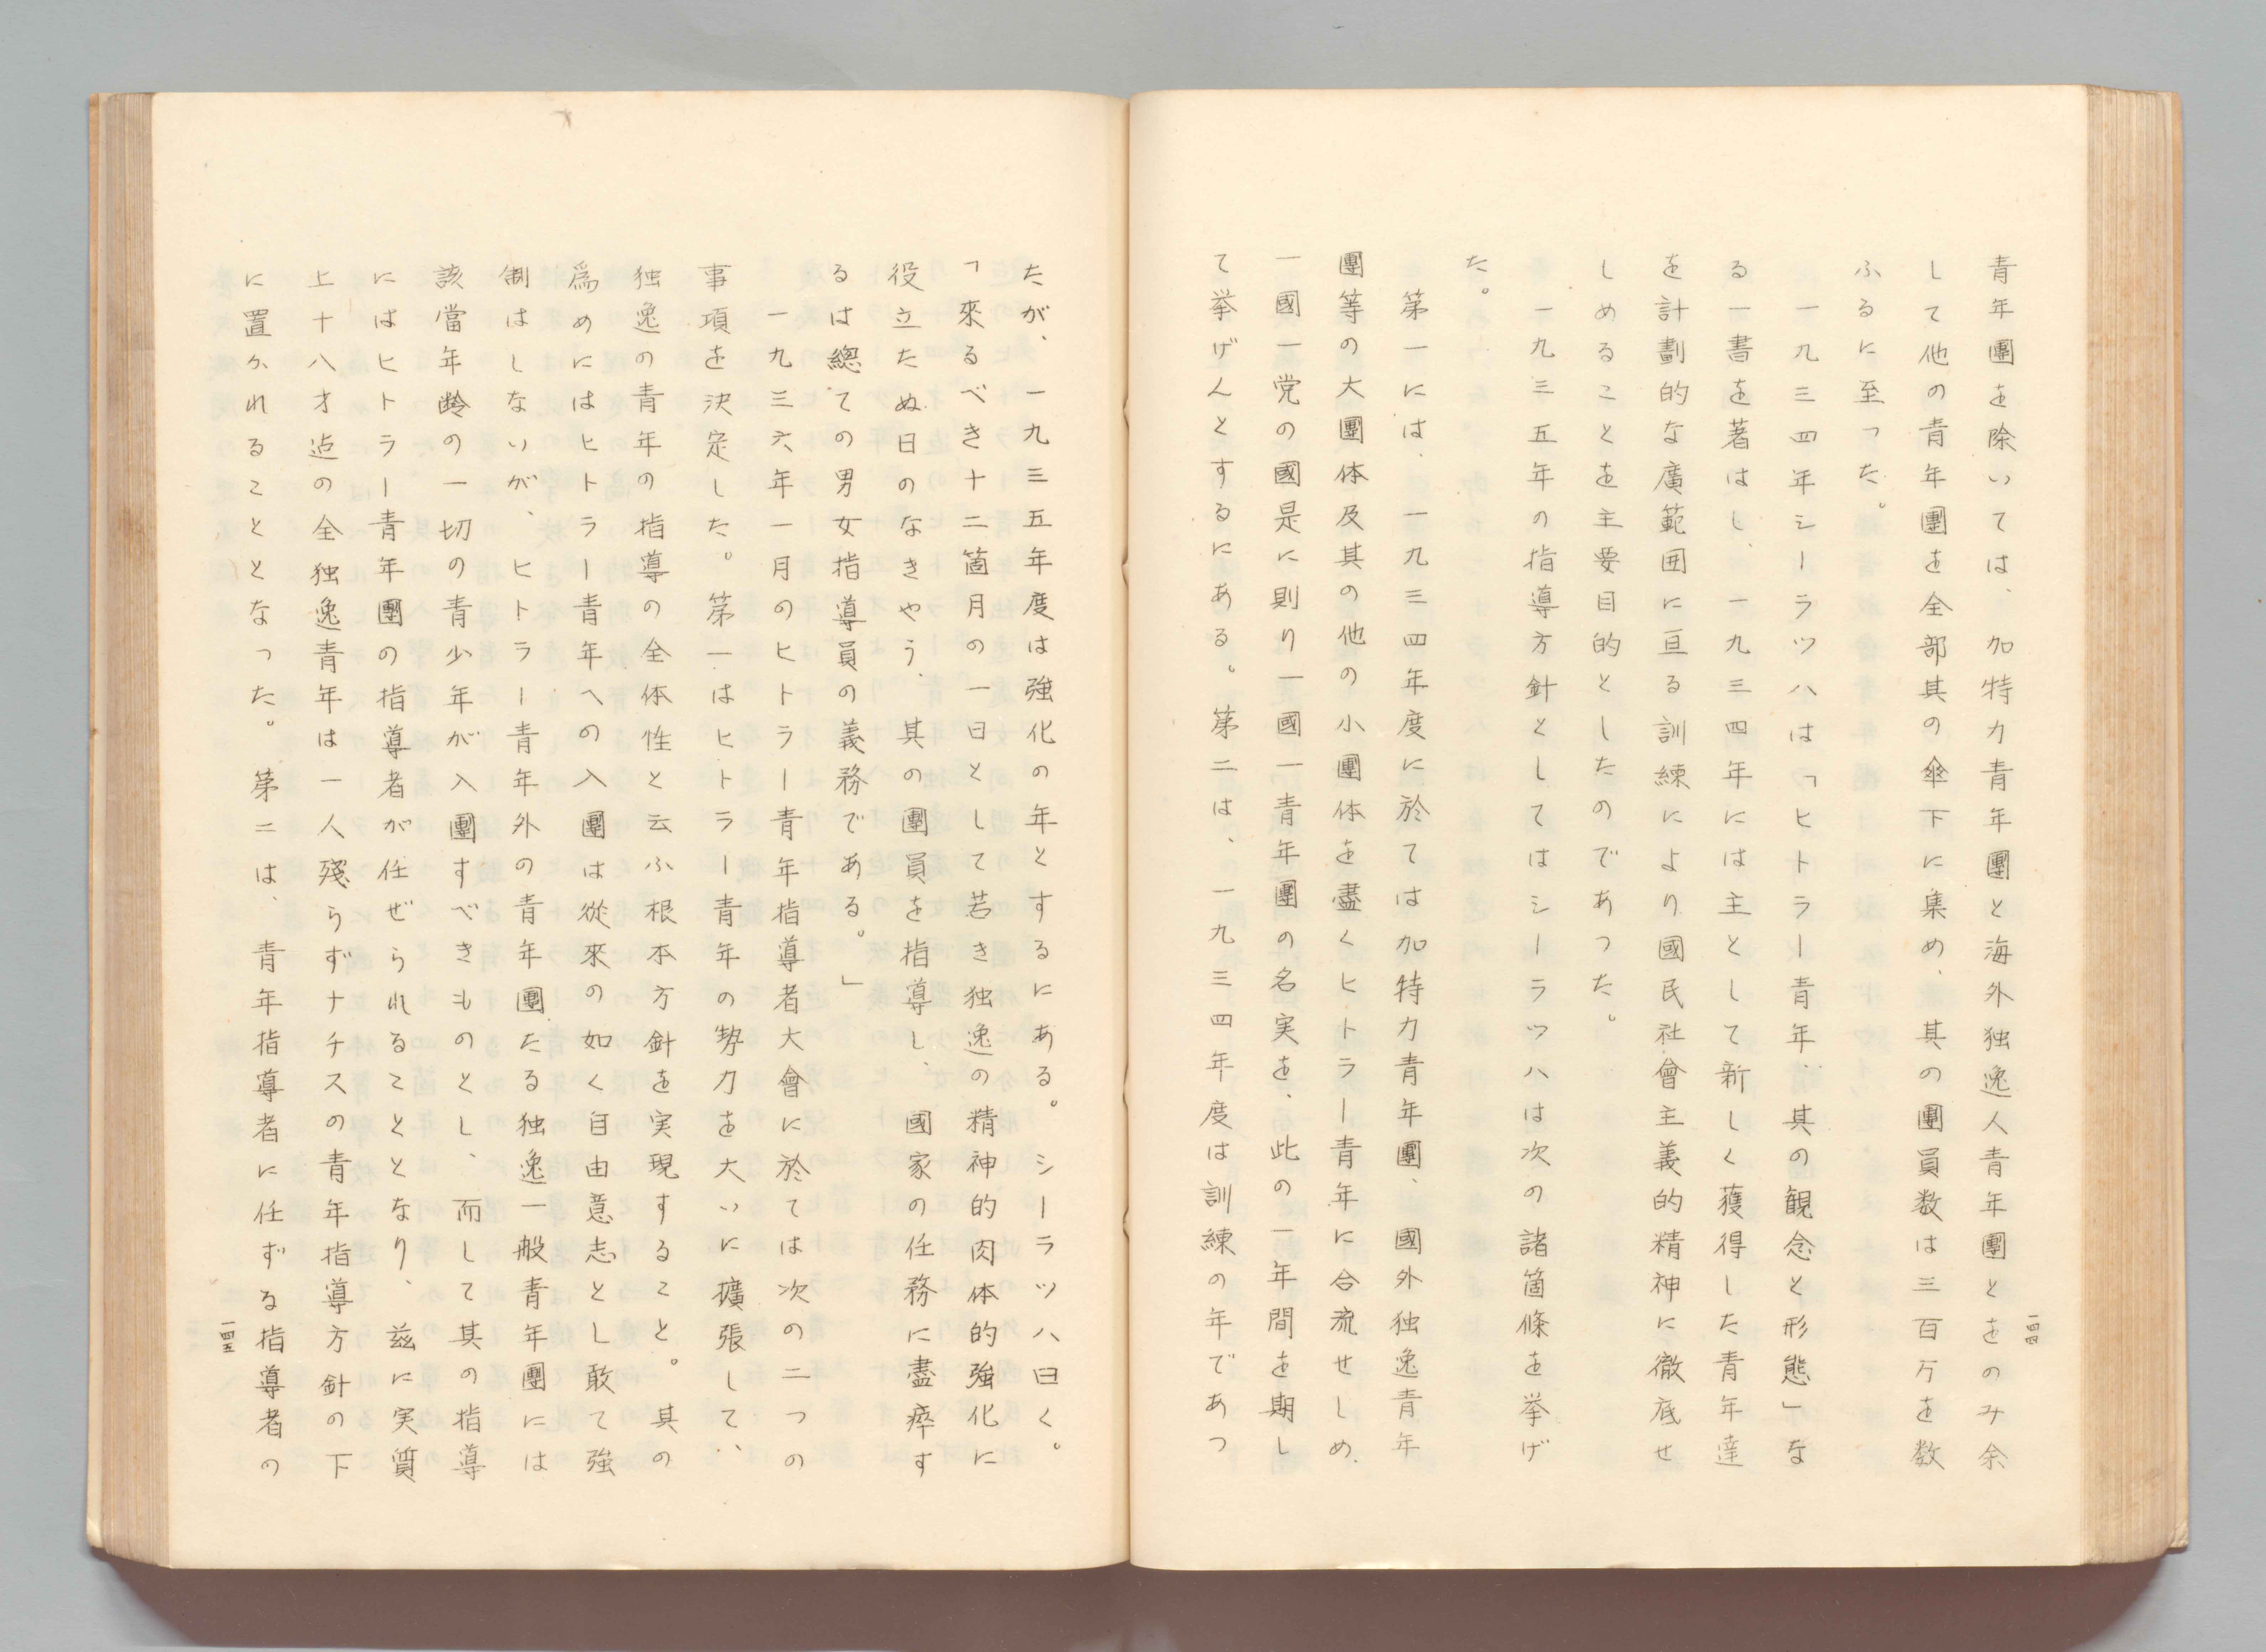 青年團を除いては、加特力青年團と海外独逸人青年團とをのみ余
して他の青年團を全部其の傘下に集め、其の團員数は三百万を数
ふるに至つた。
一九三四年シーラツハは「ヒトラー青年、其の観念と形態」な
る一書を著はし、一九三四年には主として新しく獲得した青年達
を計劃的な廣範囲に亘る訓練により國民社會主義的精神に徹底せ
しめることを主要目的としたのであつた。
一九三五年の指導方針としてはシーラツハは次の諸箇條を挙げ
た。
第一には、一九三四年度に於ては加特力青年團、國外独逸青年
團等の大團体及其の他の小團体を盡くヒトラー青年に合流せしめ、
一國一党の國是に則り一國一青年團の名実を、此の一年間を期し
て挙げんとするにある。第二は、一九三四年度は訓練の年であつ
一四四
たが、一九三五年度は強化の年とするにある。シーラツハ曰く。
「來るべき十二箇月の一日として若き独逸の精神的肉体的強化に
役立たぬ日のなきやう、其の團員を指導し、國家の任務に盡瘁す
るは總ての男女指導員の義務である。」
一九三六年一月のヒトラー青年指導者大會に於ては次の二つの
事項を決定した。第一はヒトラー青年の勢力を大いに擴張して、
独逸の青年の指導の全体性と云ふ根本方針を実現すること。其の
爲めにはヒトラー青年への入團は從來の如く自由意志とし敢て強
制はしないが、ヒトラー青年外の青年團たる独逸一般青年團には
該當年齢の一切の青少年が入團すべきものとし、而して其の指導
にはヒトラー青年團の指導者が任ぜられることとなり、茲に実質
上十八才迄の全独逸青年は一人殘らずナチスの青年指導方針の下
に置かれることとなつた。第二は、青年指導者に任ずる指導者の
一四五